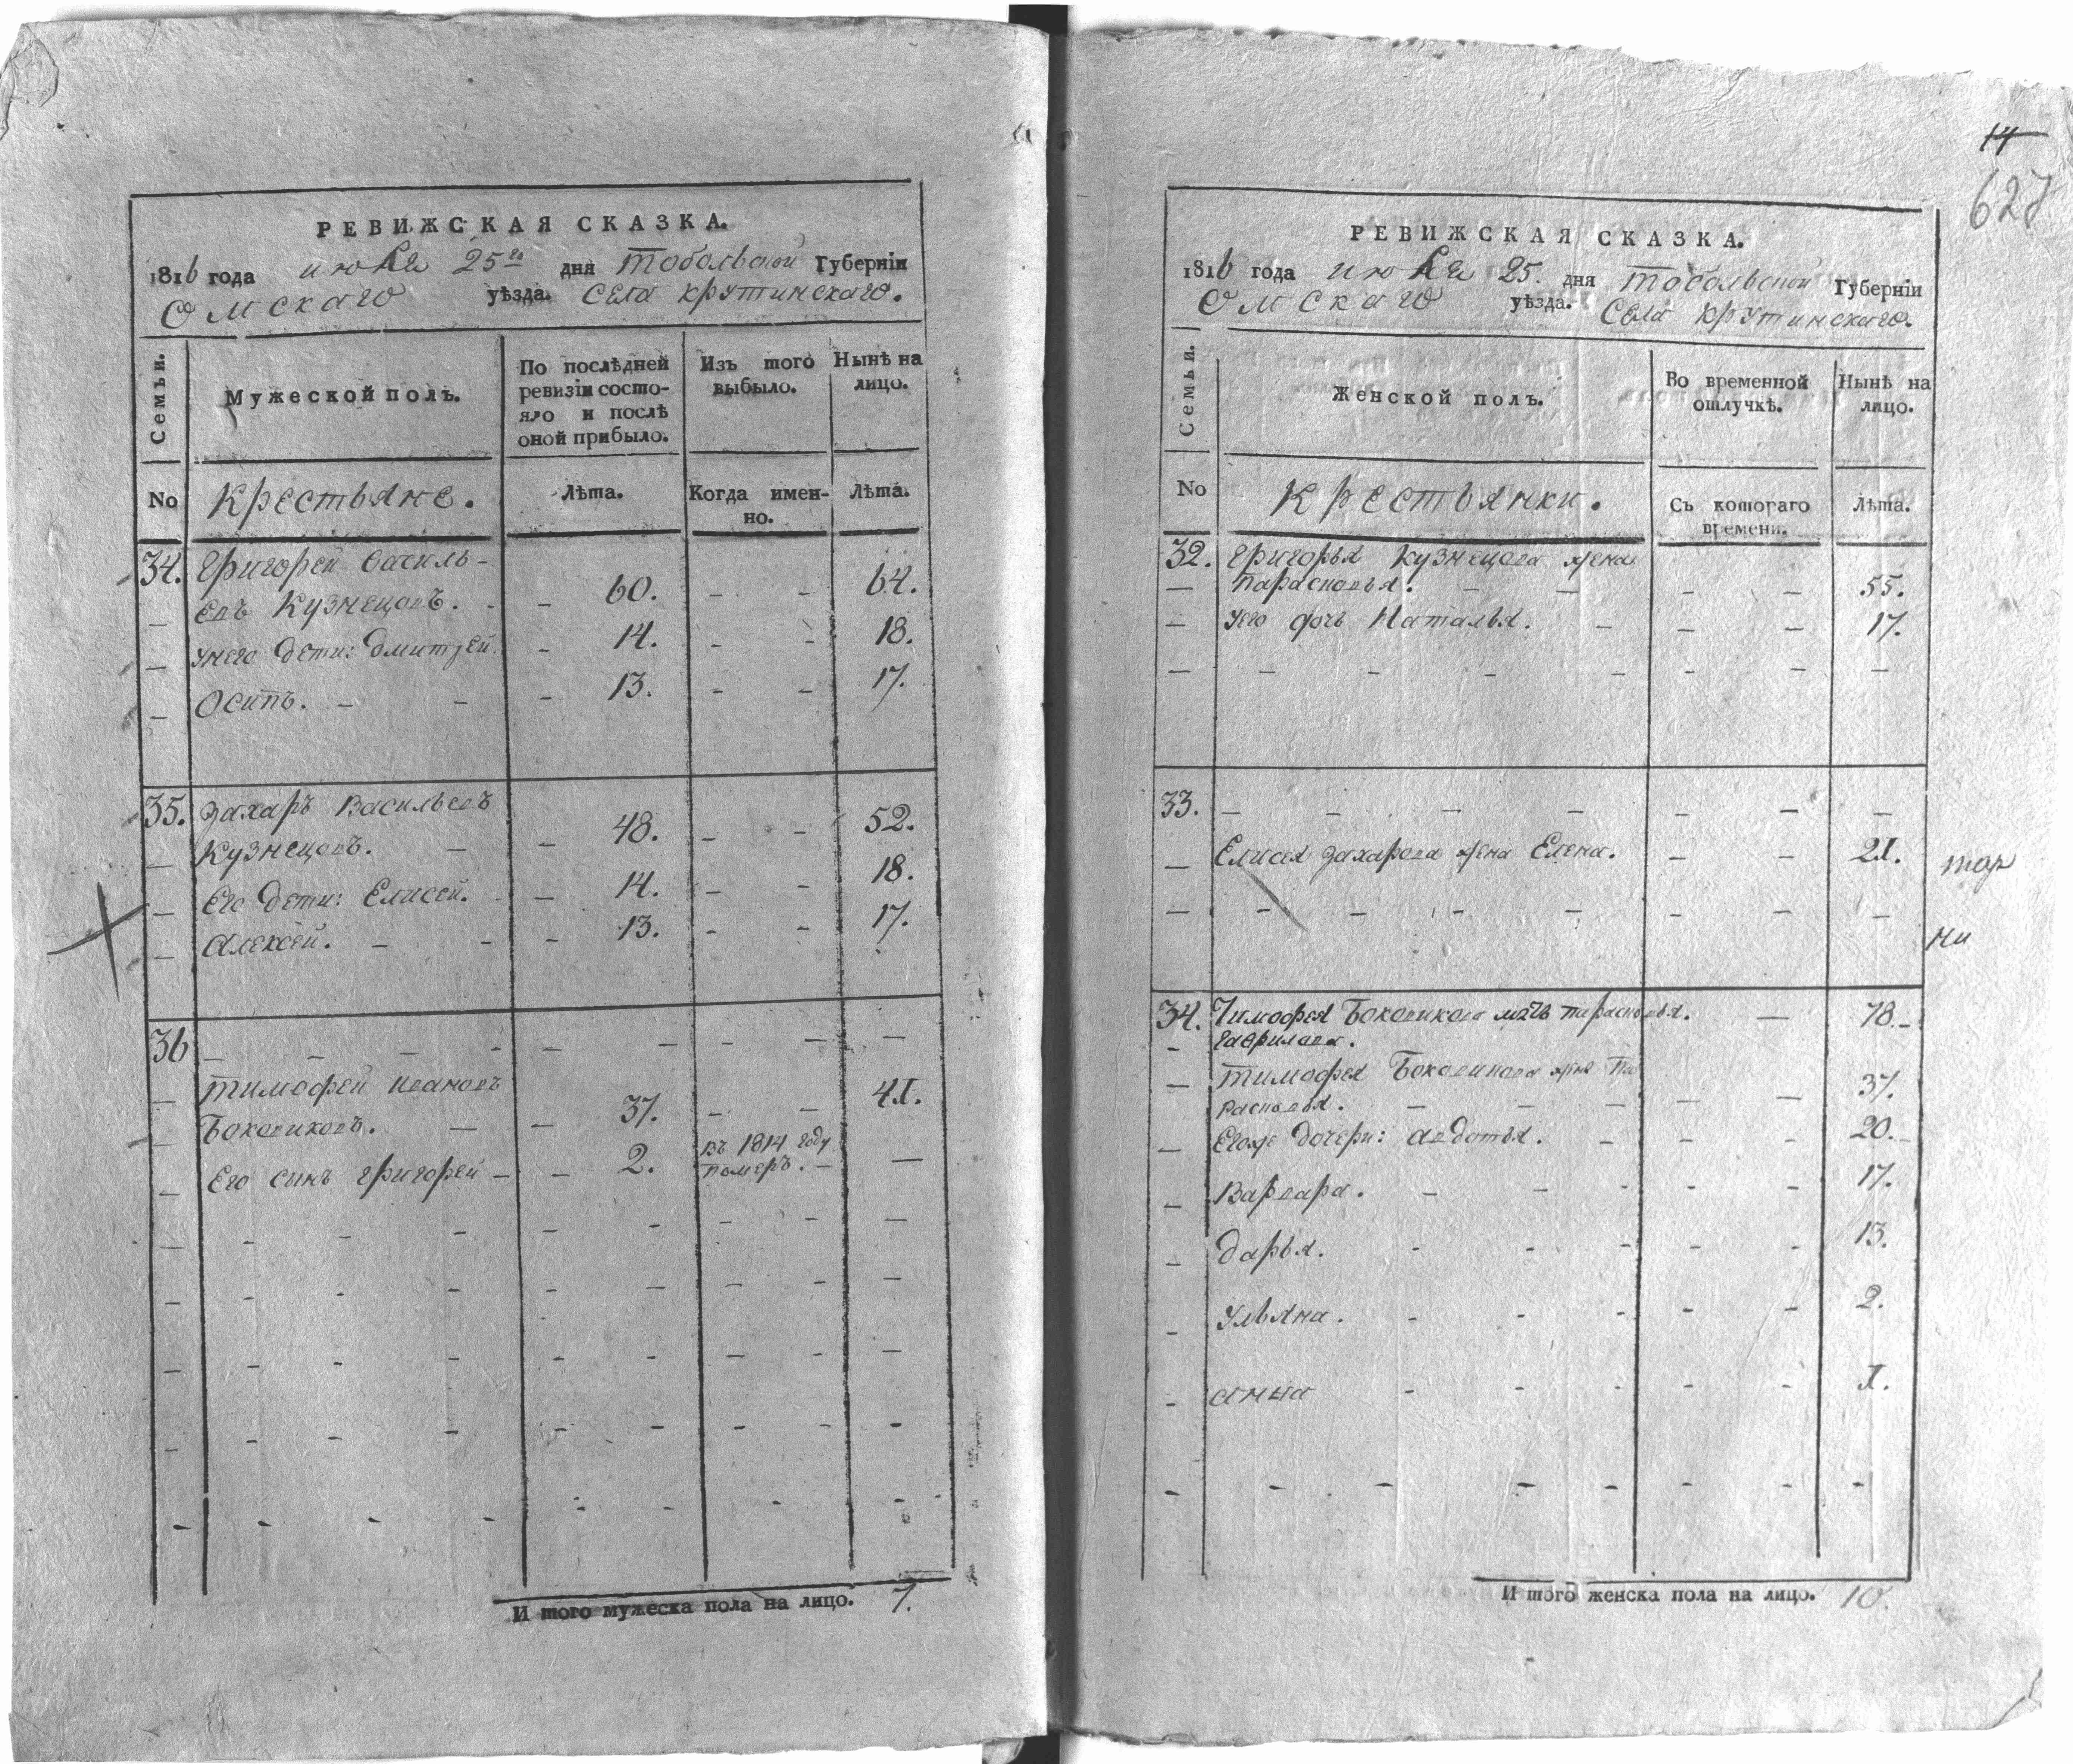 РЕВИЖСКАЯ СКАЗКА.
1816 года июля 25го дня Тобольской Губерніи
Омскаго уѣзда. Села Крутинскаго.
Семьи.
Мужеской полъ.
По послѣдней ревизіи состояло и послѣ оной прибыло.
Изъ того выбыло.
Нынѣ на лицо.
No
Крестьяне.
Лѣта.
Когда именно.
Лѣта.
34. Григорей Василь-
евъ Кузнецовъ. - - 60. - - 64.
унего дети: Дмитрей. - 14. - - 18.
Осипъ. - - - 13. - - 17.
35. Захаръ Васильевъ
Кузнецовъ. - - 48. - - 52.
Его дети: Елисей. - 14. - - 18.
Алексей. - - - 13. - - 17.
36 - - - - - - - - -
Тимофей Ивановъ
Боковиковъ. - - 37. - - 41.
Его сынъ Григорей - - 2. въ 1814 году
померъ. - -
И того мужеска пола на лицо. 7.
14
627
РЕВИЖСКАЯ СКАЗКА.
1816 года июля 25. дня Тобольской Губерніи
Омскаго уѣзда. Села Крутинскаго.
Семьи.
Женской полъ.
Во временной отлучкѣ.
Нынѣ на лицо.
No
Крестьянки.
Съ котораго времени.
Лѣта.
32. Григорья Кузнецова жена
Парасковья. - - - - 55.
Уего дочь Наталья. - - - 17.
33. - - - - - - -
Елисея Захарова жена Елена. - - 21.
34. Тимофея Боковикова мать Парасковья. - 78.
Гаврилова.
Тимофея Боковикова жена Па
расковья. - - - - - 37.
Егоже дочери: Авдотья. - - - 20.
Варвара. - - - - - 17.
Дарья. - - - - - 13.
Ульяна. - - - - - 2.
Анна - - - - - 1.
И того женска пола на лицо. 10.